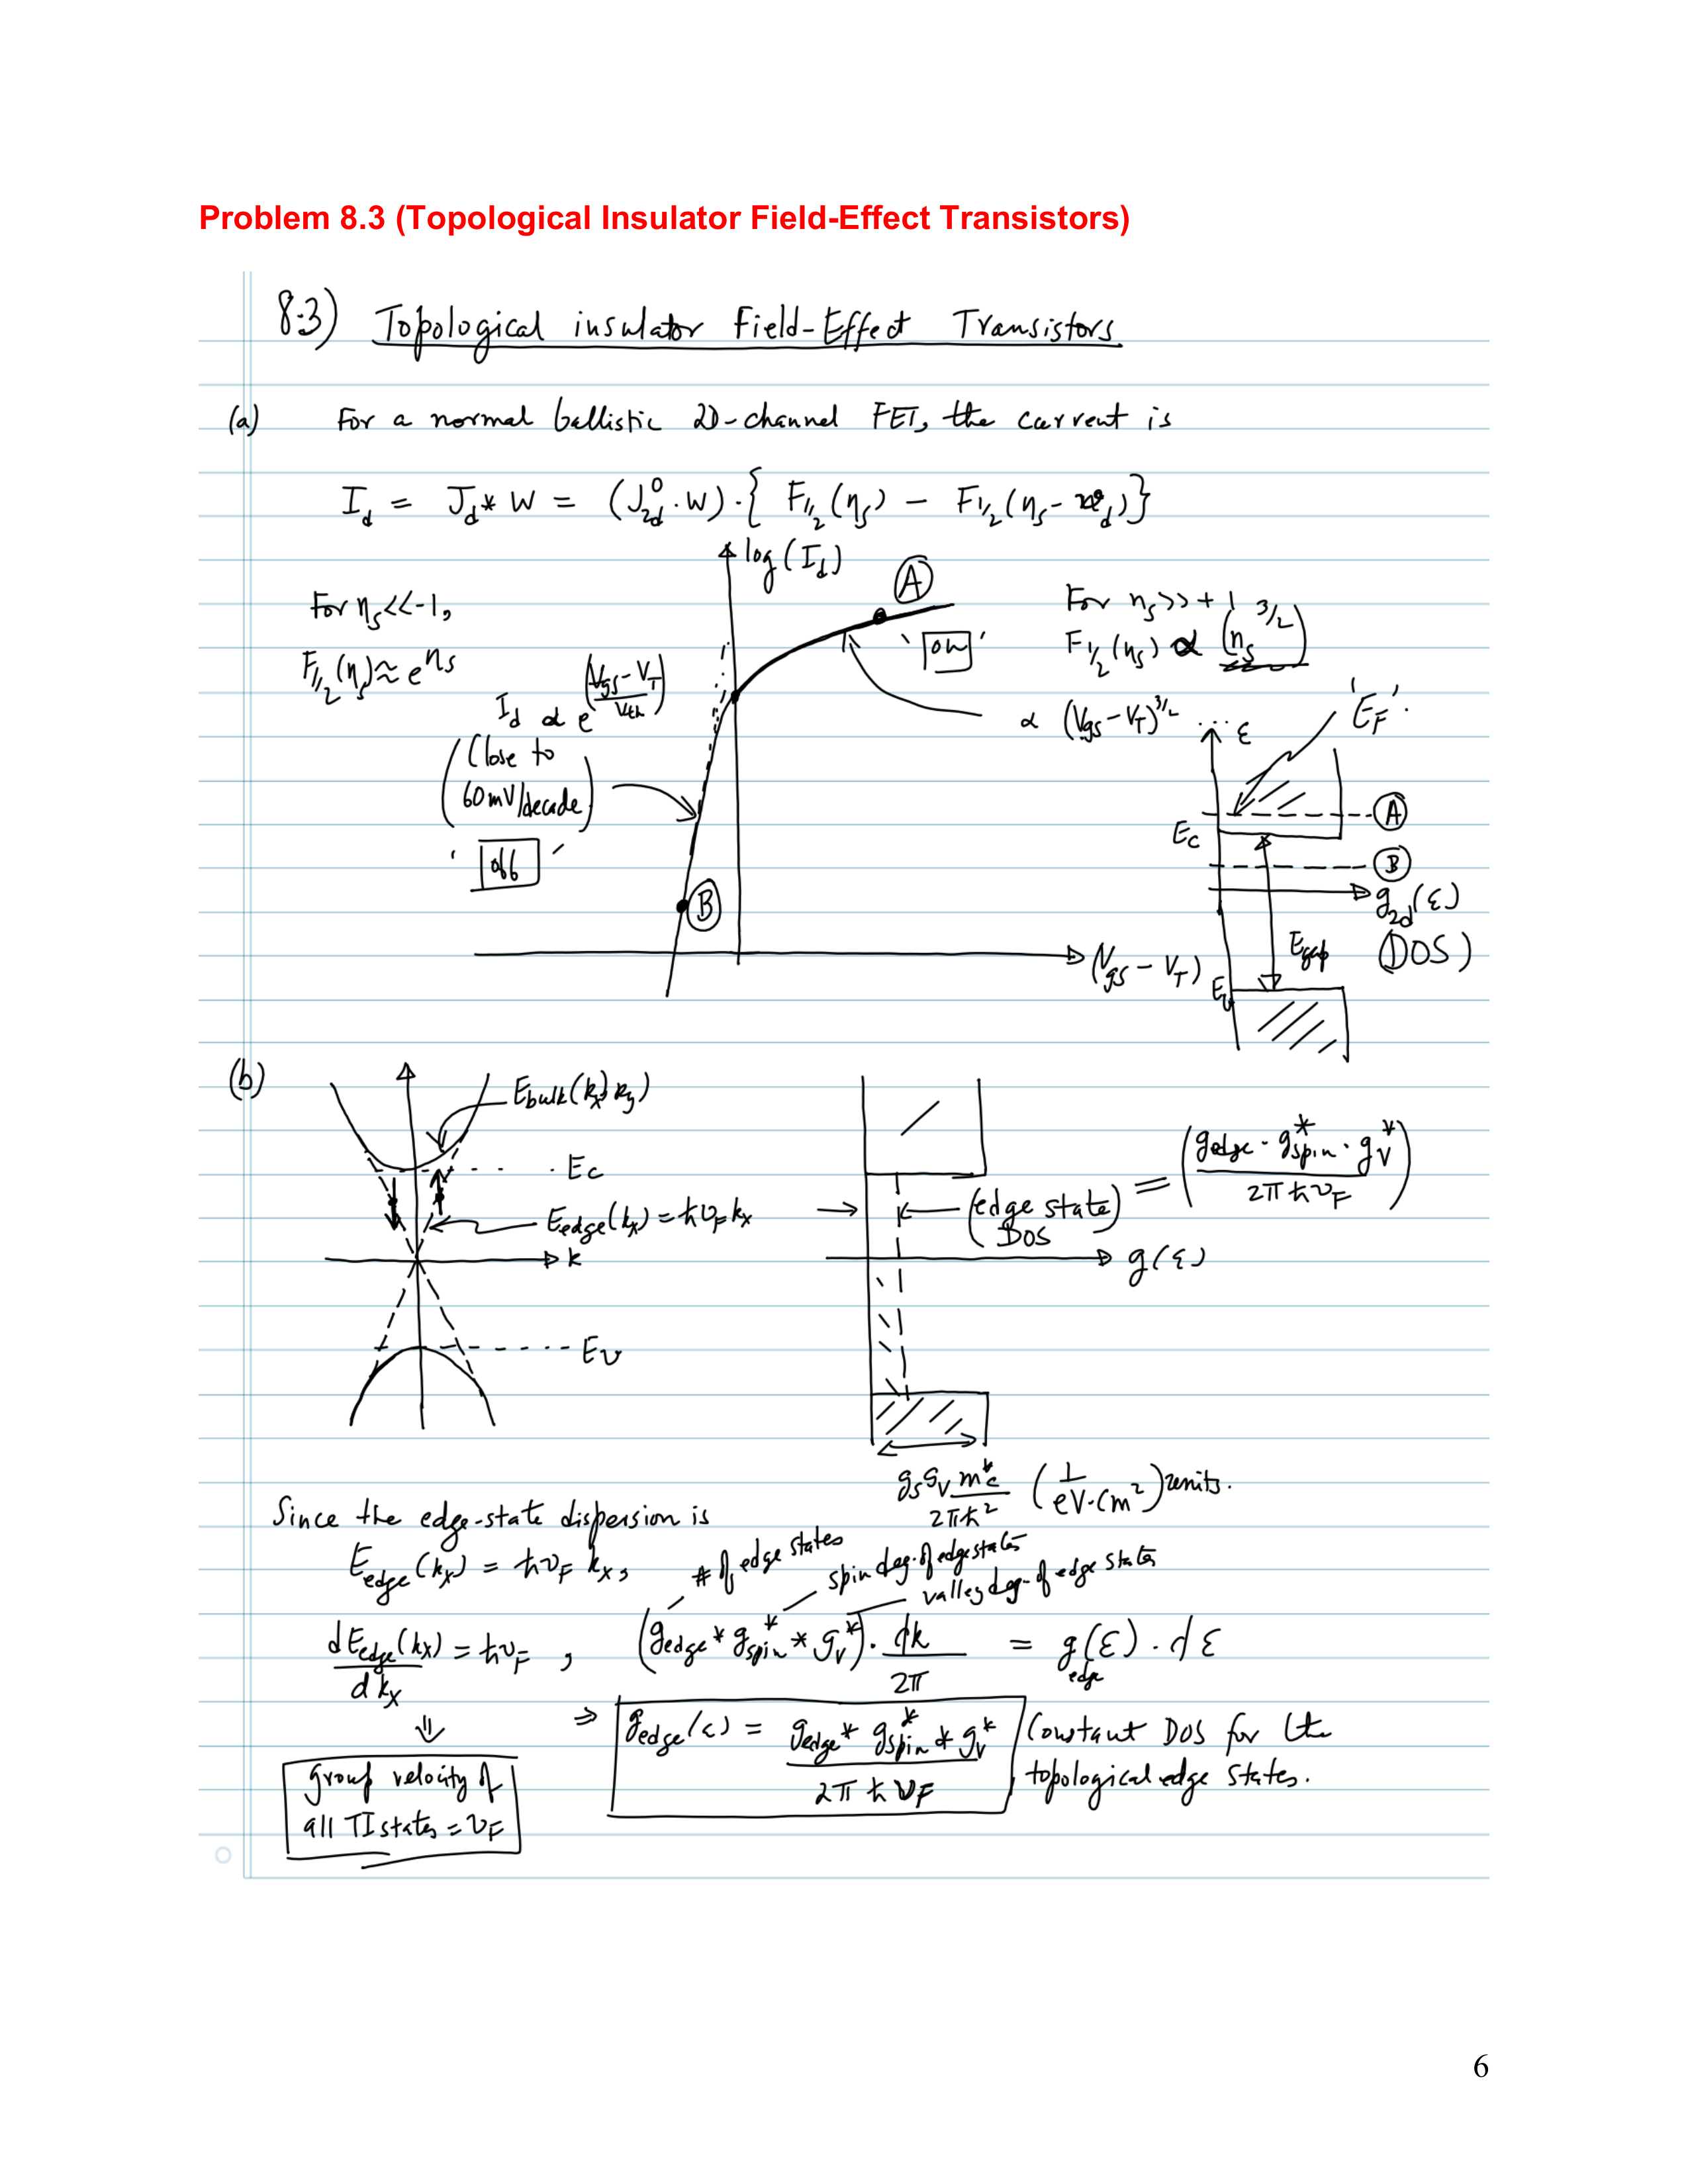 Problem 8.3 (Topological Insulator Field-Effect Transistors)
8.3) Topological insulator Field-Effect Transistors
(a) For a normal ballistic 2D-channel FET, the current is
I_d = J_d * W = (J_2d^0 · W) · { F_1/2 (η_s) − F_1/2 (η_s − v_d) }
log (I_d)
A
For η_s << -1,
F_1/2 (η_s) ≈ e^η_s
I_d ∝ e^((V_gs − V_T)/V_th)
(Close to
60 mV/decade)
' off '
B
' ON '
For η_s >> +1
F_1/2 (η_s) ∝ (η_s^3/2)
∝ (V_gs − V_T)^3/2 ...
(V_gs − V_T)
ε
'E_F'.
E_c
A
B
g_2d (ε)
E_gap (DOS)
E_v
(b) E_bulk (k_x, k_y)
E_c
E_edge (k_x) = ħ v_F k_x
k
E_v
(edge state DOS) = (g_edge · g_spin^* · g_v^* / 2π ħ v_F)
g (ε)
g_s g_v m_c^* / 2π ħ^2 (1 / eV·cm^2) units.
Since the edge-state dispersion is
E_edge (k_x) = ħ v_F k_x,
# of edge states
spin deg. of edge states
valley deg. of edge states
dE_edge (k_x) / dk_x = ħ v_F , (g_edge * g_spin^* * g_v^*) · dk / 2π = g_edge (ε) · dε
⇓
group velocity of
all TI states = v_F
⇒ g_edge (ε) = g_edge * g_spin^* * g_v^* / 2π ħ v_F
Constant DOS for the
topological edge states.
6